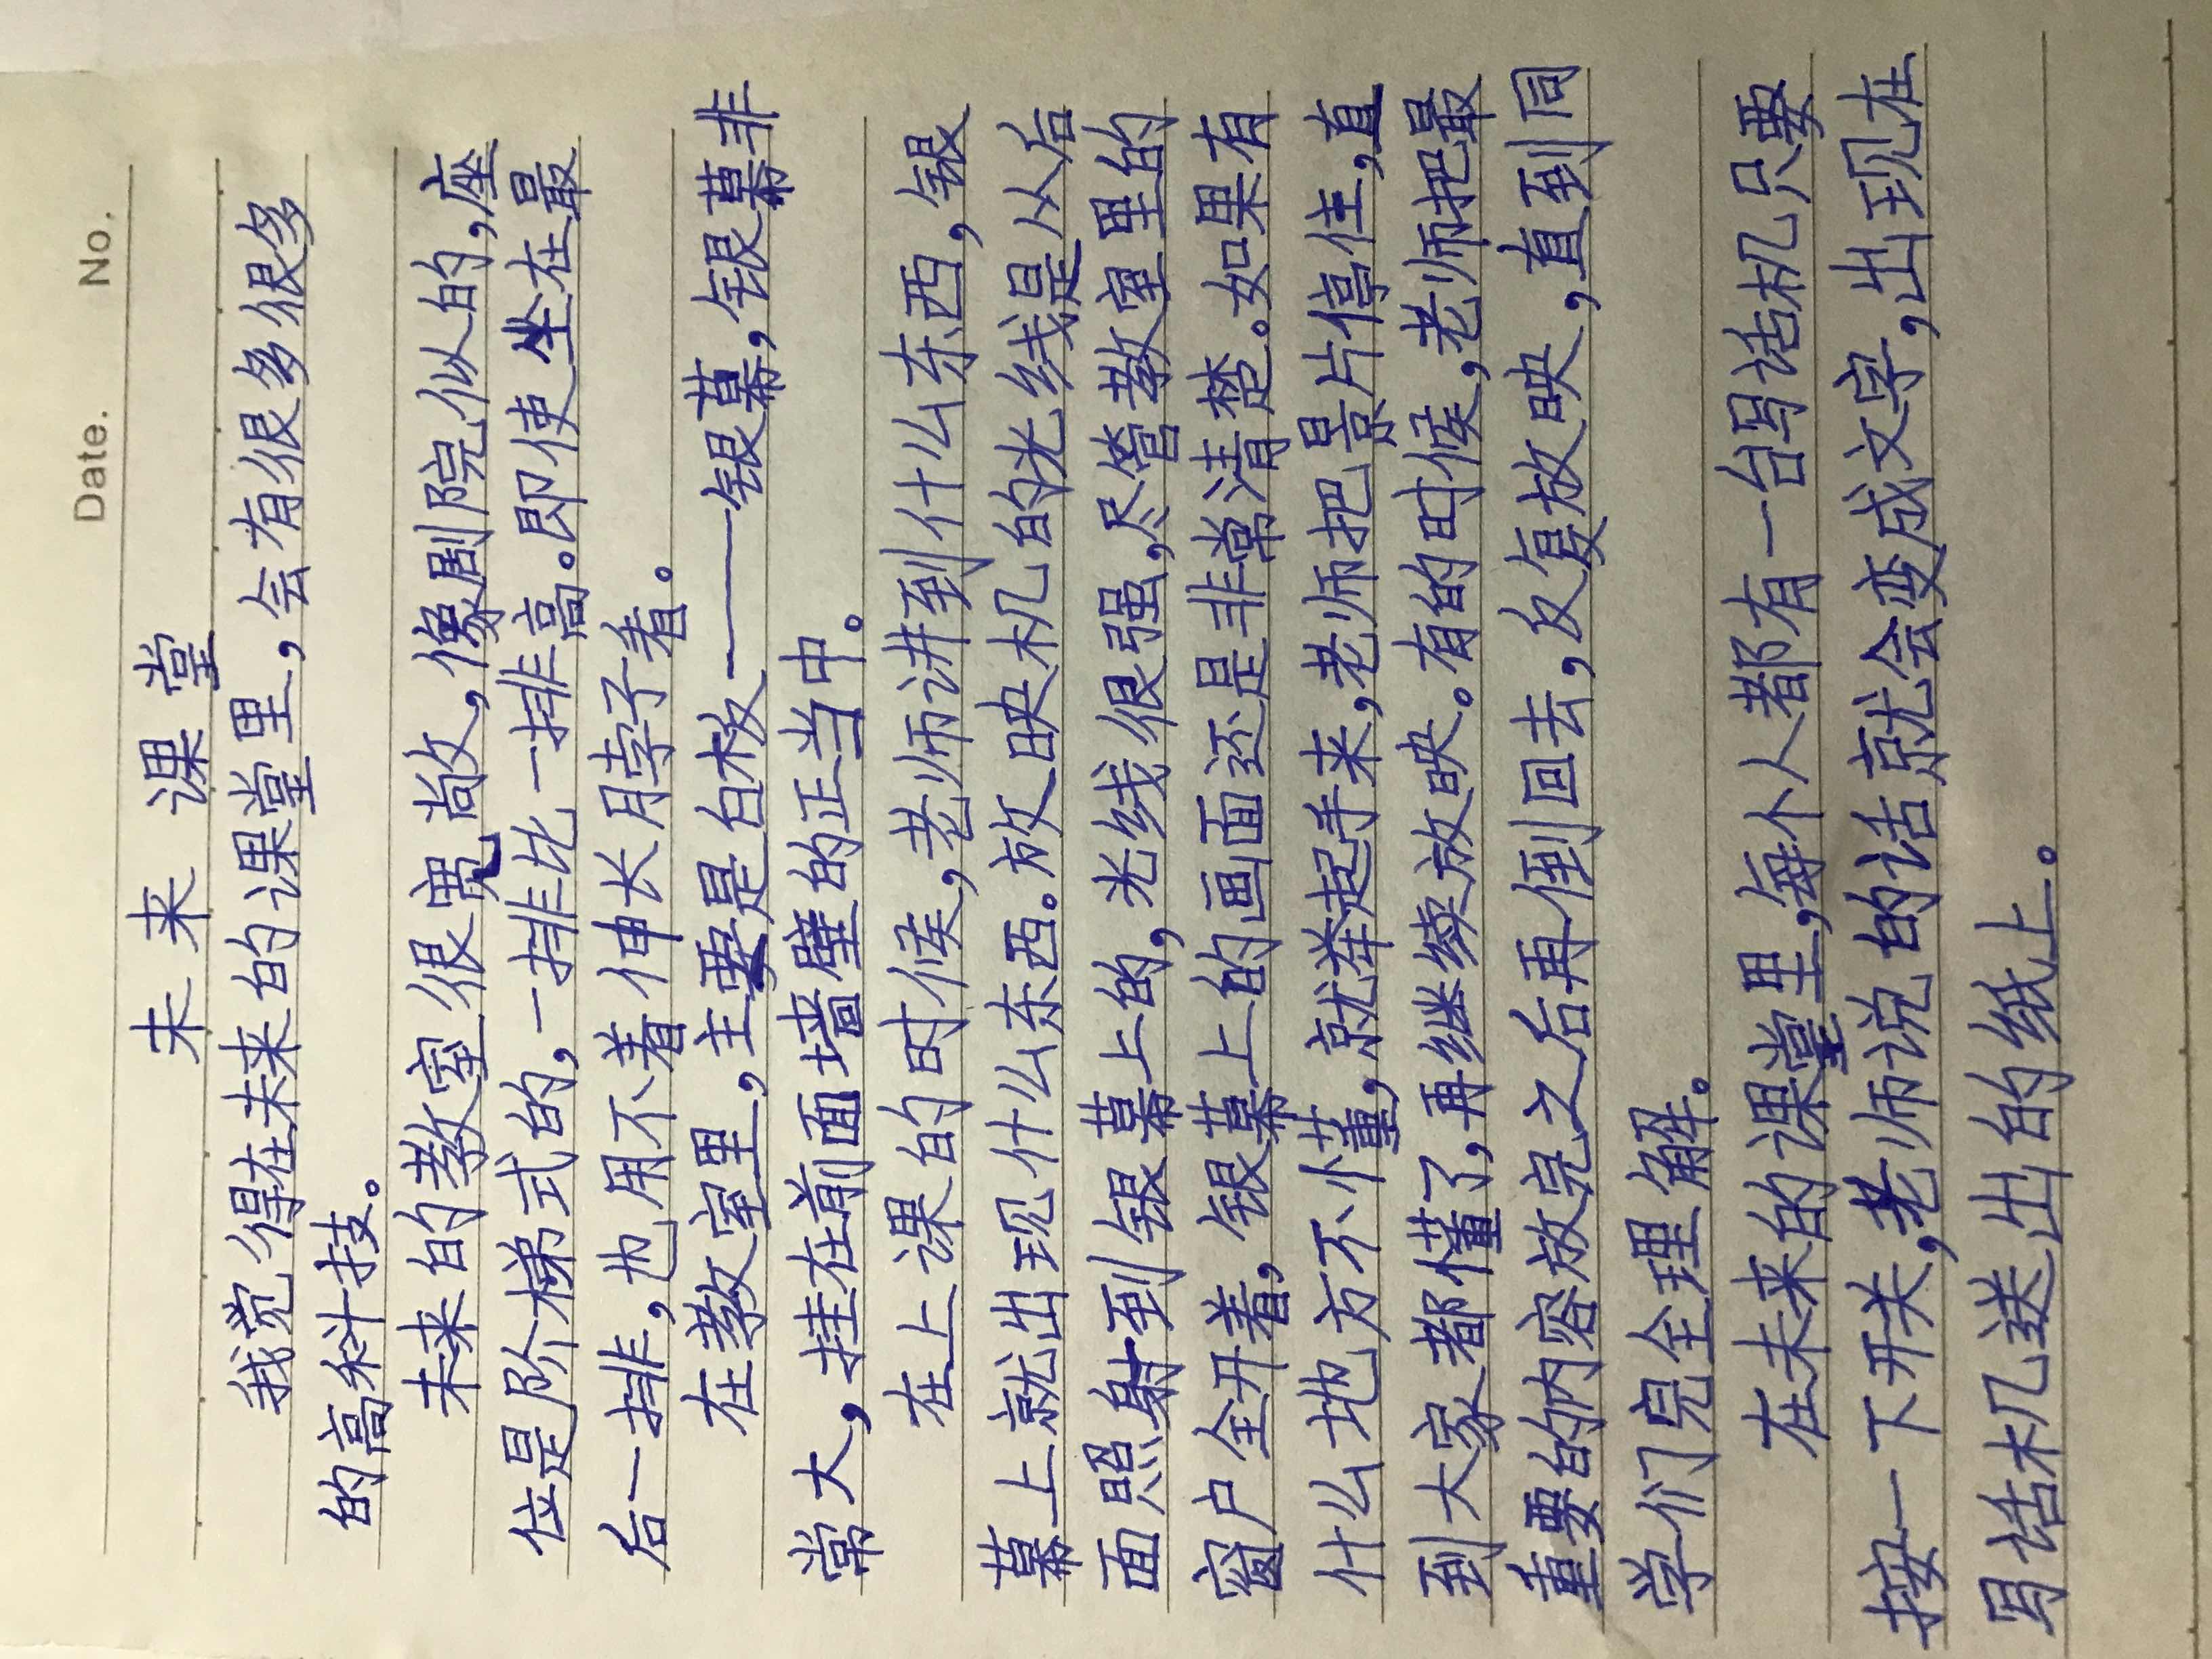 Date.    No.
未来课堂
我觉得在未来的课堂里，会有很多很多
的高科技。
未来的教室很宽敞，像剧院似的，座
位是阶梯式的，一排比一排高。即使坐在最
后一排，也用不着伸长脖子看。
在教室里，主要是白板——银幕，银幕非
常大，挂在前面墙壁的正当中。
在上课的时候，老师讲到什么东西，银
幕上就出现什么东西。放映机的光线是从后
面照射到银幕上的，光线很强，尽管教室里的
窗户全开着，银幕上的画面还是非常清楚。如果有
什么地方不懂，就举起手来，老师把景片停住，直
到大家都懂了，再继续放映。有的时候，老师把最
重要的内容放完之后再倒回去，反复放映，直到同
学们完全理解。
在未来的课堂里，每个人都有一台写话机只要
按一下开关，老师说的话就会变成文字，出现在
写话机送出的纸上。